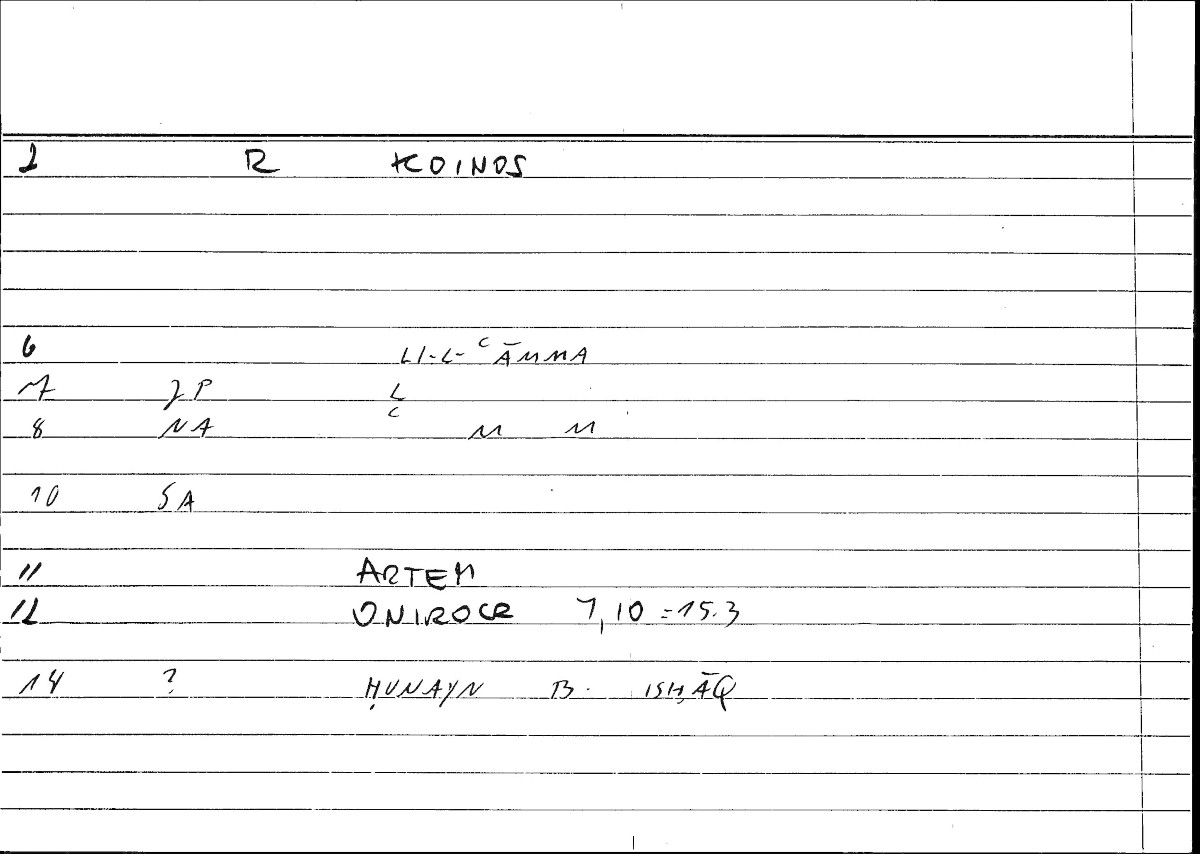 1 R KOINOS
6 LI-L-ʿĀMMA
7 JP L
8 NA ʿ M M
10 SA
11 ARTEM
12 ONIROCR 1,10 = 15.3
14 ? ḤUNAYN B. ISḤĀQ